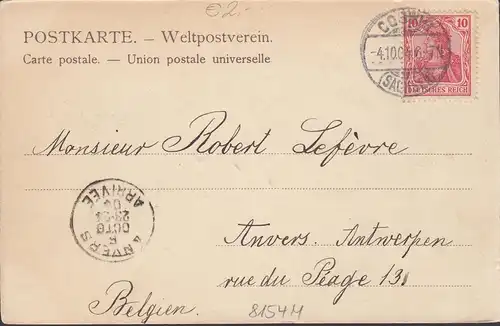 €2.-
POSTKARTE. — Weltpostverein.
Carte postale. — Union postale universelle
10 10
DEUTSCHES REICH
-4.10.04
Monsieur Robert Lefèvre
ANVERS
ARRIVÉE
23-24
OCTO
04
Anvers. Antwerpen
rue du Péage 138
Belgien.
8154M